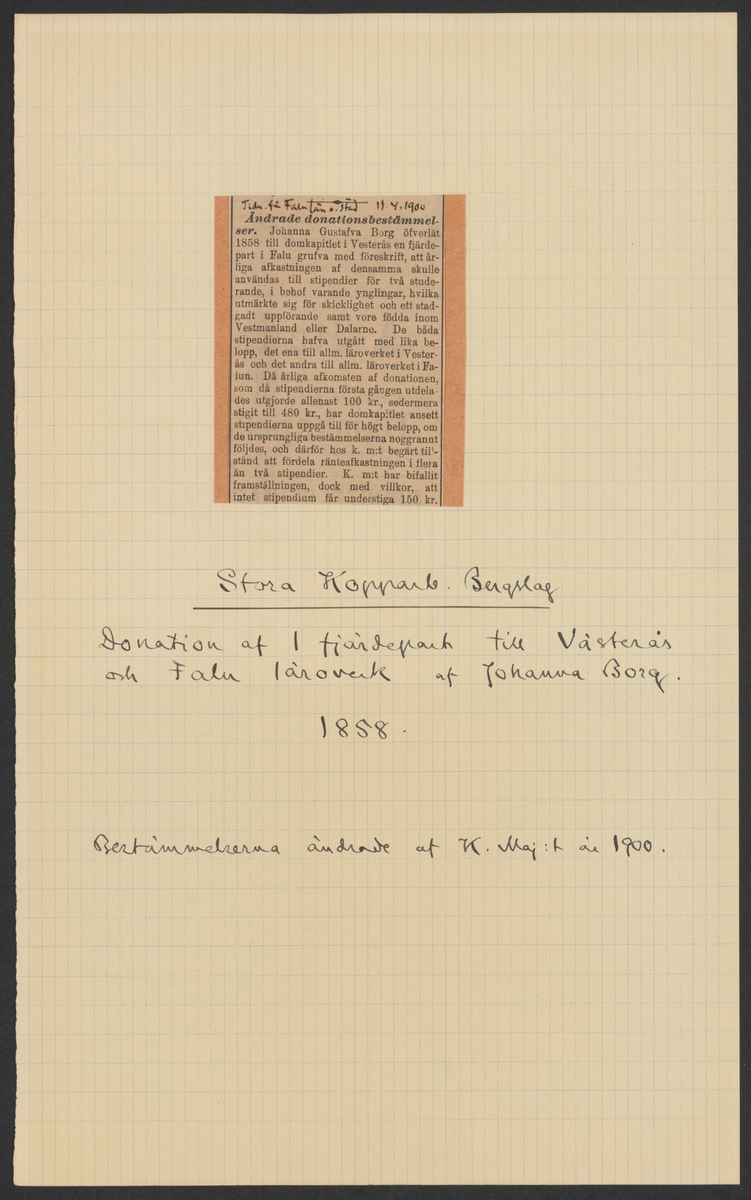 Tidn. för Falu län o. stad 11.4.1900
Ändrade donationsbestämmel-
ser. Johanna Gustafva Borg öfverlät
1858 till domkapitlet i Vesterås en fjärde-
part i Falu grufva med föreskrift, att år-
liga afkastningen af densamma skulle
användas till stipendier för två stude-
rande, i behof varande ynglingar, hvilka
utmärkte sig för skicklighet och ett stad-
gadt uppförande samt vore födda inom
Vestmanland eller Dalarne. De båda
stipendierna hafva utgått med lika be-
lopp, det ena till allm. läroverket i Vester-
ås och det andra till allm. läroverket i Fa-
lun. Då årliga afkomsten af donationen,
som då stipendierna första gången utdela-
des utgjorde allenast 100 kr., sedermera
stigit till 480 kr., har domkapitlet ansett
stipendierna uppgå till för högt belopp, om
de ursprungliga bestämmelserna noggrannt
följdes, och därför hos k. m:t begärt till-
stånd att fördela ränteafkastningen i flera
än två stipendier. K. m:t har bifallit
framställningen, dock med villkor, att
intet stipendium får understiga 150 kr.
Stora Kopparb. Bergslag
Donation af 1 fjärdepart till Västerås
och Falu läroverk af Johanna Borg.
1858.
Bestämmelserna ändrade af K. Maj:t år 1900.